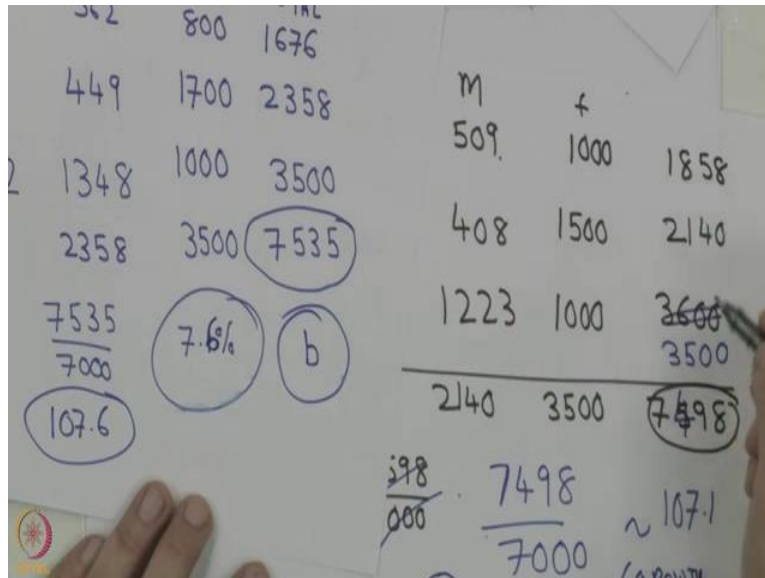 362 800
1676
449 1700 2358
1348 1000 3500
2358 3500 7535
7535
7000
7.6% b
107.6
m f
509. 1000 1858
408 1500 2140
1223 1000 3600
3500
2140 3500 7498
398
000
7498
7000
~ 107.1